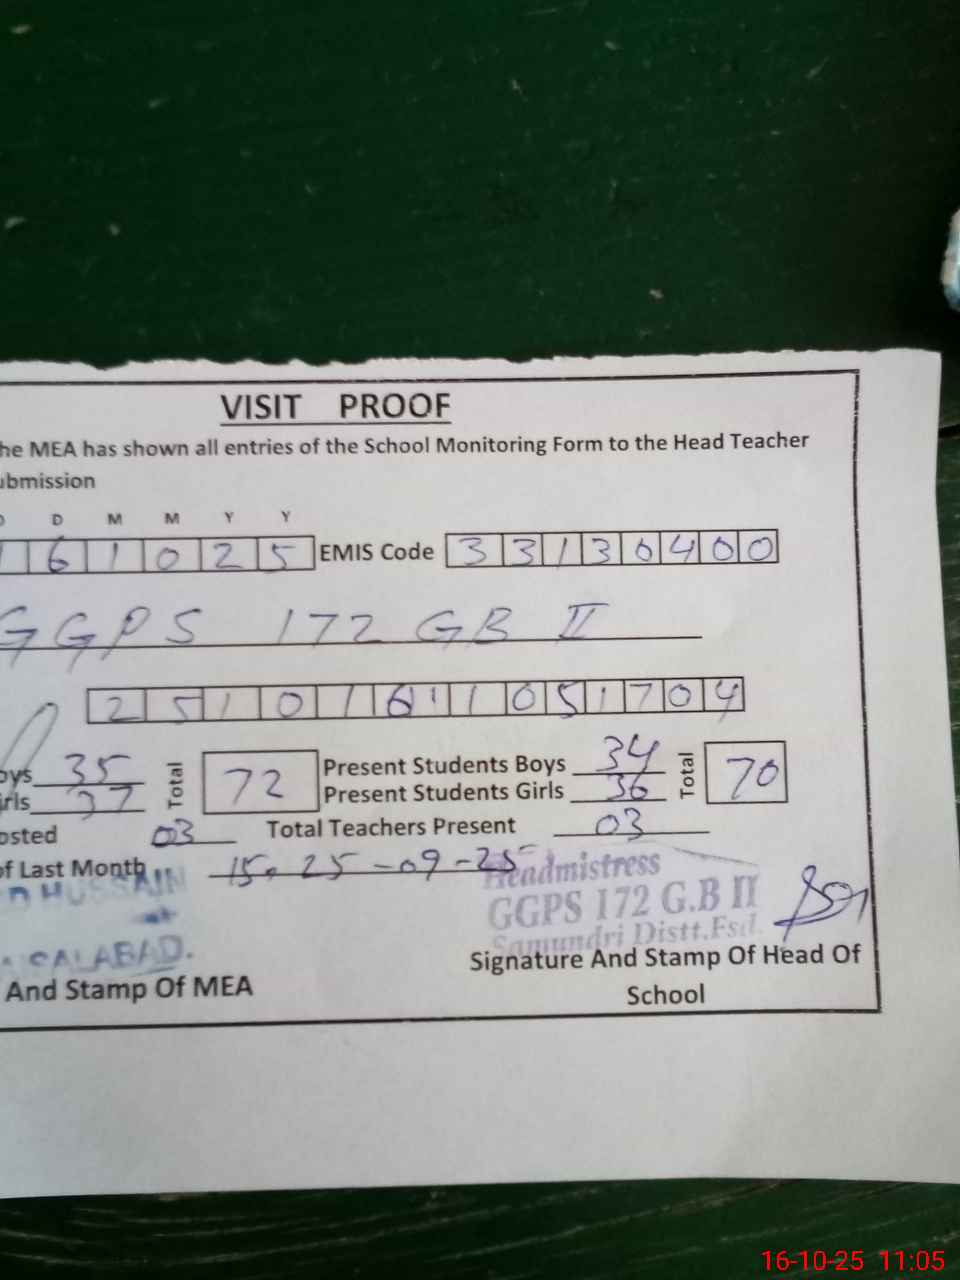 VISIT PROOF
he MEA has shown all entries of the School Monitoring Form to the Head Teacher
ubmission
D M M Y Y
1 6 1 0 2 5 EMIS Code 3 3 1 3 0 4 0 0
GGPS 172 GB II
2 5 1 0 1 6 1 1 0 5 1 7 0 4
oys 35 Total 72 Present Students Boys 34 Total 70
irls 37 Present Students Girls 36
osted 03 Total Teachers Present 03
of Last Month 25-09-25
D HUSSAIN
Headmistress
GGPS 172 G.B II
Samundri Distt.Fsd.
SALABAD.
And Stamp Of MEA
Signature And Stamp Of Head Of
School
16-10-25 11:05